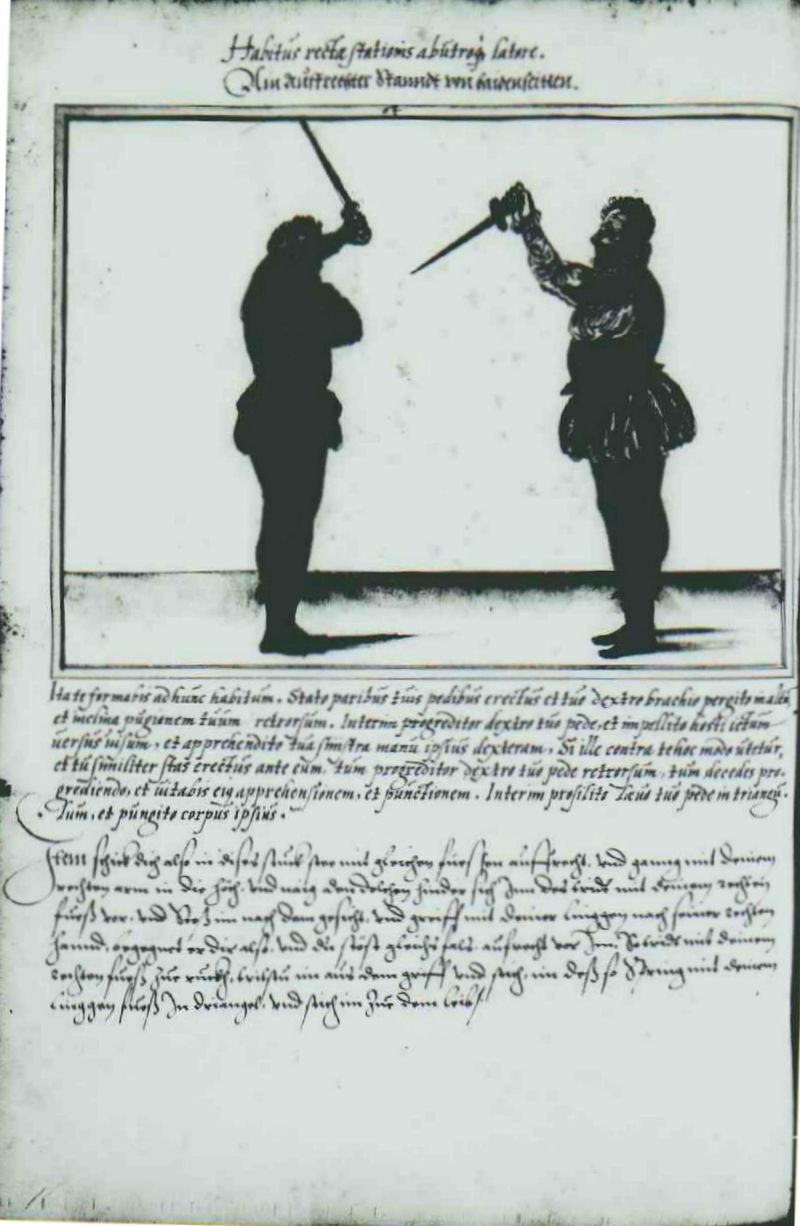 Habitus rectæ stationis ab utroq̃ latere.
Ain Aufrechter Stanndt von baiden seitten.
Ita te formabis ad hunc habitum. Stato paribus tuis pedibus erectus et tuo dextro brachio pergito
et inclina pugionem tuum retrorsum. Interim progreditor dextro tuo pede, et impellito hosti ictum
uersus uisum, et apprehendito tua sinistra manu ipsius dexteram. Si ille contra te hoc modo utetur,
et tu similiter stas erectus ante eum, tum progreditor dextro tuo pede retrorsum, tum decedis pro-
grediendo, et uitabis eiq apprehensionem, et punctionem. Interim prosilito læuo tuo pede in triangu-
lum, et pungito corpus ipsius.
Item schick dich also in dises stuckh stee mit gleichen fuessen auffrecht, vnd ganng mit deinem
rechten arm in die höch, vnd naig den dolchen hinder sich Inn des trit mit deinem rechten
fuesß vor, vnd Stoß im nach dem gesicht, vnd greiff mit deiner linggen nach seiner rechten
hannd, begegnet er dir also, vnd du steest gleichsfals aufrecht vor Im, So trit mit deinem
rechten fuesß zue ruckh, im aus dem griff vnd stich, in deß so Spring mit deinem
linggen fuesß In driangel, vnd stich im zue dem leib/